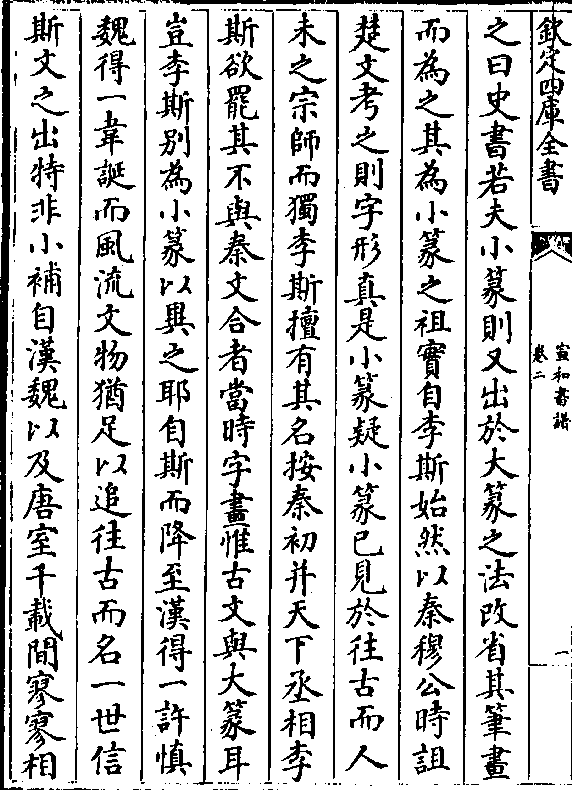 欽定四庫全書
宣和書譜
卷二
一
之曰史書若夫小篆則又出於大篆之法改省其筆畫
而為之其為小篆之祖實自李斯始然以秦穆公時詛
楚文考之則字形真是小篆疑小篆已見於往古而人
未之宗師而獨李斯擅有其名按秦初并天下丞相李
斯欲罷其不與秦文合者當時字畫惟古文與大篆耳
豈李斯別為小篆以異之耶自斯而降至漢得一許慎
魏得一韋誕而風流文物猶足以追往古而名一世信
斯文之出特非小補自漢魏以及唐室千載間寥寥相